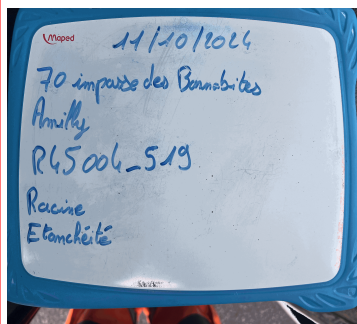 Maped
11/10/2024
70 impasse des Barnabites
Amilly
R45004_519
Racine
Etanchéité